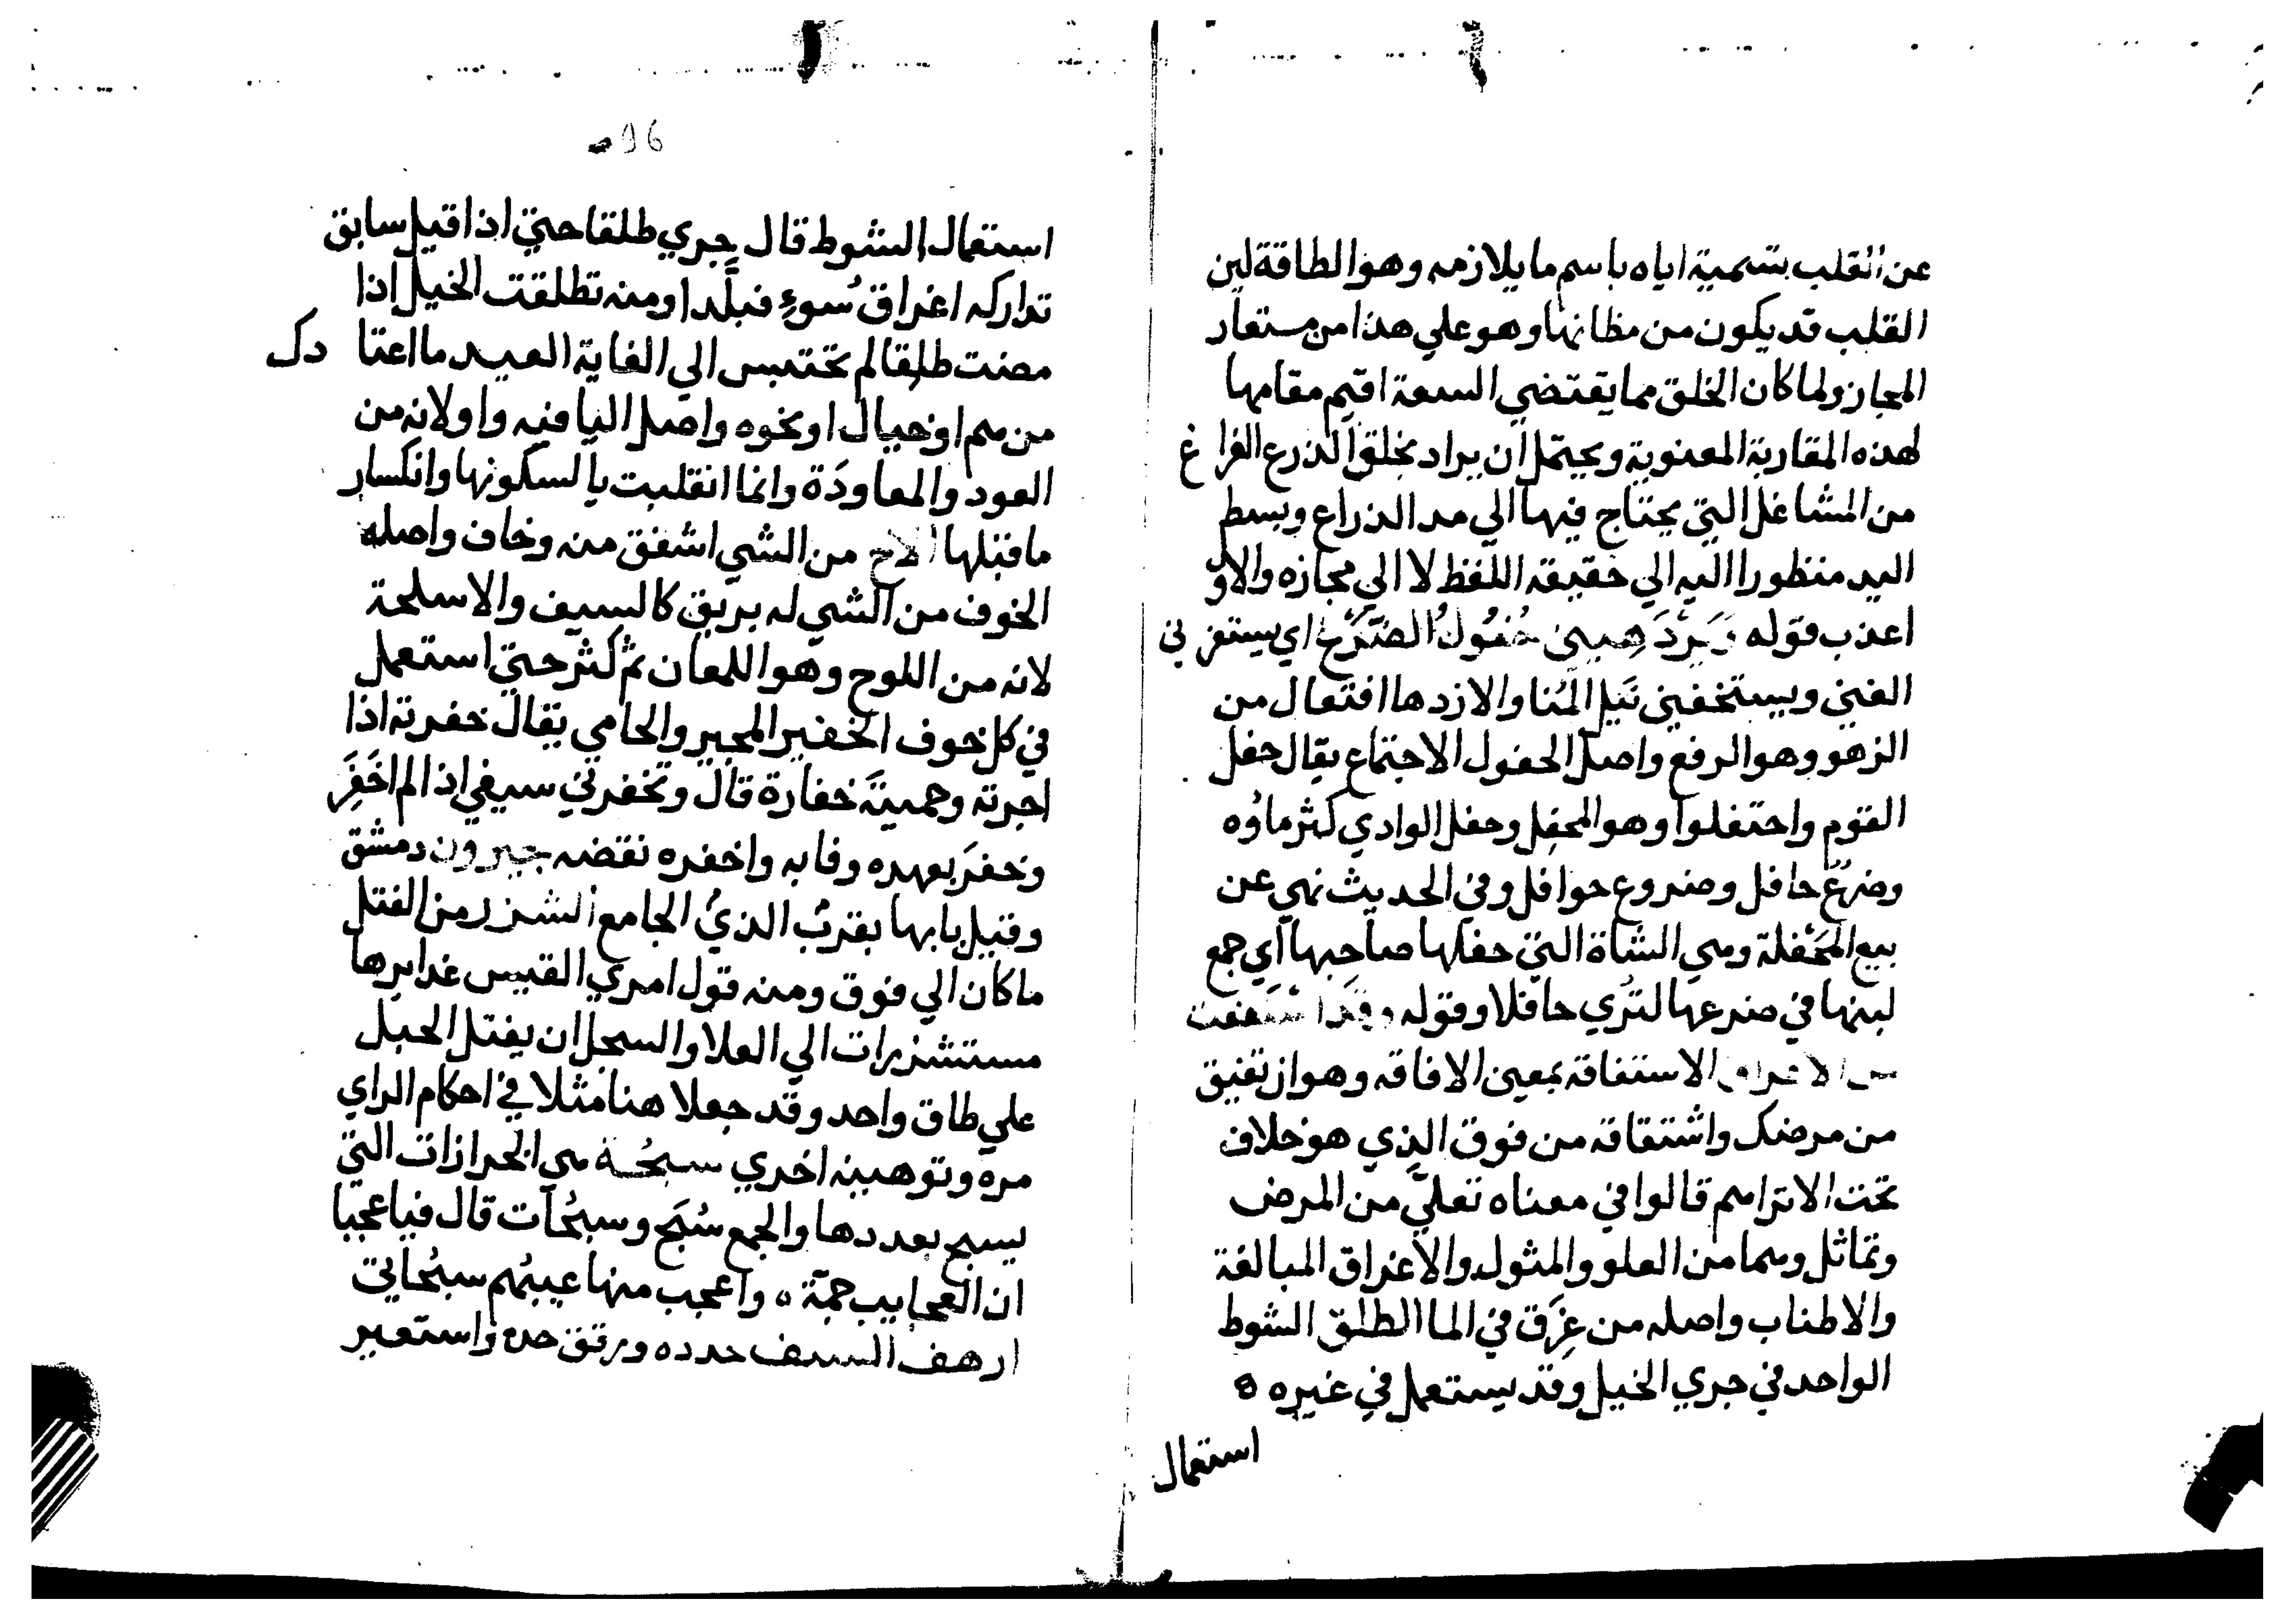 عن القلب بتسمية اياه باسم ما يلازمه وهو الطاقة لين
القلب قد يكون من مظانها وهو علي هذا من مستعار
المجاز ولما كان الخلق مما يقتضي السعة اقيم مقامها
لهذه المقاربة المعنوية ويحتمل ان يراد بخلق الذرع الفراغ
من المشاغل التي يحتاج فيها الي مد الذراع وبسط
اليد منظورا اليه الي حقيقة اللفظ لا الي مجازه والاو
اعذب قوله اي يستفزني
الغني ويستخفني نيل المنا والازدها افتعال من
الزهو وهو الرفع واصل الحفول الاجتماع يقال حفل
القوم واحتفلوا وهو المحفل وحفل الوادي كثر ماؤه
وضرع حافل وضروع حوافل وفي الحديث نهي عن
بيع المحفلة وهي الشاة التي حفلها صاحبها اي جمع
لبنها في ضرعها لتري حافلا وقوله
الاستفاقة بمعين الافاقة وهو ان تفيق
من مرضك واشتقاقه من فوق الذي هو خلاف
تحت الا تراهم قالوا في معناه تعلي من المرض
وتماثل وهما من العلو والمثول والاغراق المبالغة
والاطناب واصله من غرق في الما الطلق الشوط
الواحد في جري الخيل وقد يستعمل في غيره
استعمال
96
استعمال الشوط قال جري طلقا حتي اذا قيل سابق
تداركه اغراق سوء فبلدا ومنه تطلقت الخيل اذا
مضت طلقا لم تحتبس الي الغاية العيد ما اعتادك
من هم او خيال او نحوه واصل اليا فيه واو لانه من
العود والمعاودة وانما انقلبت يا لسكونها وانكسار
ما قبلها الاح من الشي اشفق منه وخاف واصله
الخوف من الشي له بريق كالسيف والاسلحة
لانه من اللوح وهو اللمعان ثم كثر حتي استعمل
في كل خوف الخفير المجير والحامي يقال خفرته اذا
اجرته وحميته خفارة قال وتخفرني سيفي اذا لم اخفر
وخفر بعهده وفا به واخفره نقضه جيرون دمشق
وقيل بابها بقرب الذي الجامع الشزر من الفتل
ما كان الي فوق ومنه قول امري القيس غدايرها
مستشزرات الي العلا والسحل ان يفتل الحبل
علي طاق واحد وقد جعلا هنا مثلا في احكام الراي
مره وتوهينه اخري سبحة هي الخرازات التي
يسبح بعددها والجمع سبح وسبحات قال فيا عجبا
ان العجايب جمة واعجب منها عيبهم سبحاتي
ارهف السيف حدده ورقق حده واستعير